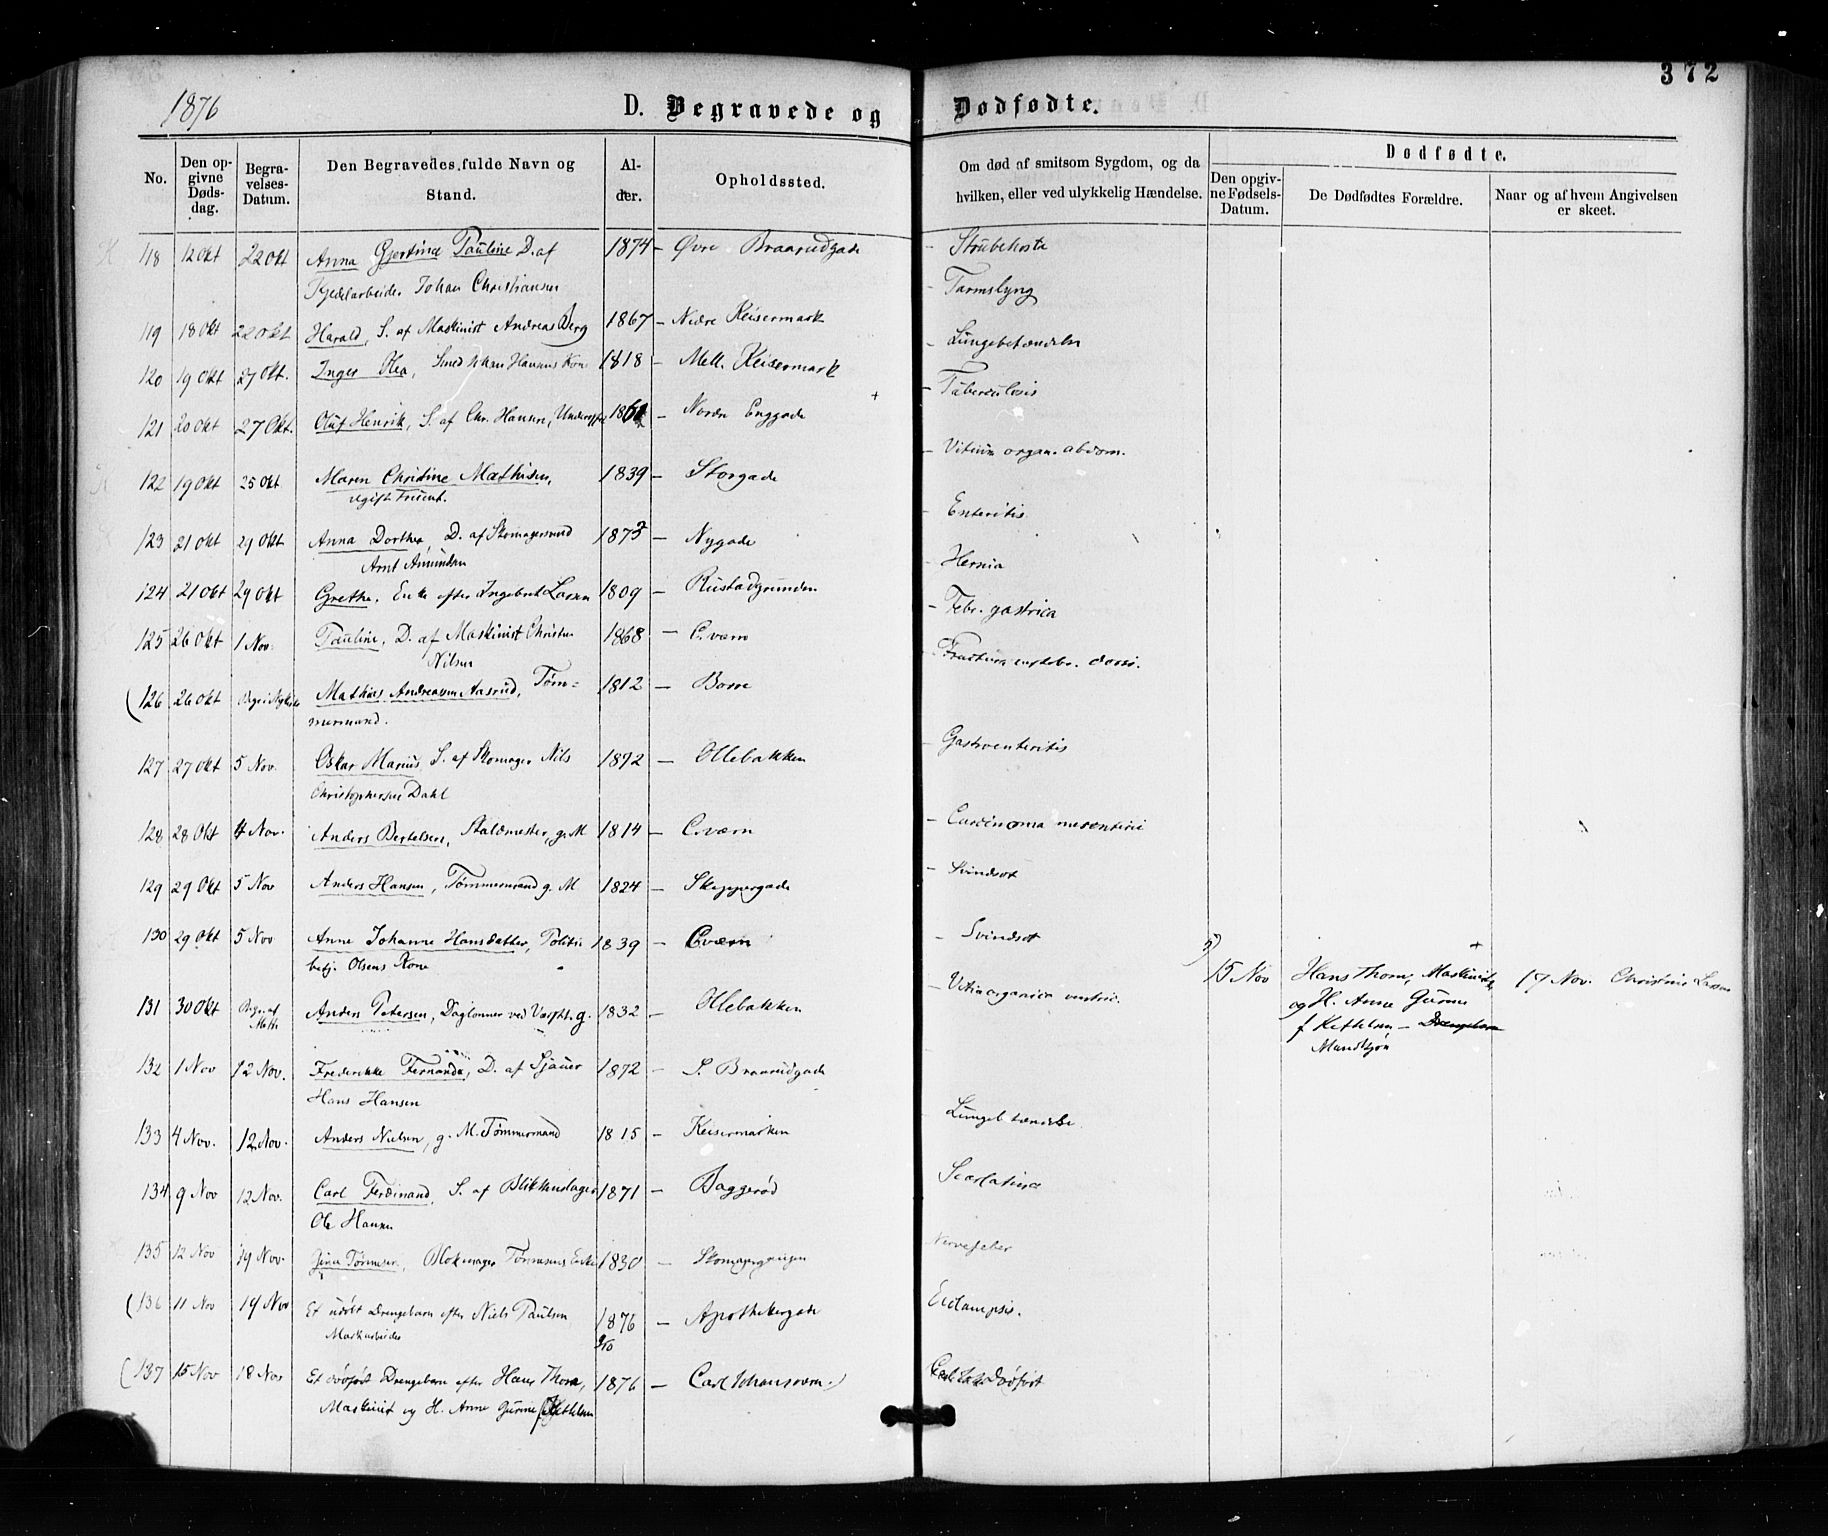 372
1876 D. Begravede og Dødfødte.
No.
Den op-
givne
Døds-
dag.
Begra-
velses-
Datum.
Den Begravedes fulde Navn og
Stand.
Al-
der.
Opholdssted.
Om død af smitsom Sygdom, og da
hvilken, eller ved ulykkelig Hændelse.
Dødfødte.
Den opgiv-
ne Fødsels-
Datum.
De Dødfødtes Forældre.
Naar og af hvem Angivelsen
er skeet.
118 12 Okt 22 Okt Anna Gjertine Pauline D. af 1874 – Øvre Braarudgade – Strubehoste
Johan Christiansen
119 18 Okt 22 Okt Harald, S. af Maskinist Andreas Berg 1867 – Nedre Keisermark – Lungebetændelse
120 19 Okt 27 Okt. Inger Hansens Kone 1818 – Mell. Keisermark – Tuberculosis
121 20 Okt 27 Okt. Oluf Henrik, S. af Chr. Hansen, – Nordre Enggade – Vitium organ. abdom.
122 19 Okt 25 Okt Maren Christine Mathisen, 1839 – Storgade – Enteritis
ugift
123 21 Okt 29 Okt Anna Dorthea, D. af Skomagersvend 1873 – Nygade – Hernia
Arnt Amundsen
124 21 Okt 29 Okt Grethe, Enke efter Ingebret Larsen 1809 – Rustadgrunden – Febr. gastrica
125 26 Okt 1 Nov. Pauline, D. af Maskinist Christen 1868 – C.værn
Nilsen
126 26 Okt Mathias Andreassen Aasrud, Tøm- 1812 – Borre
mermand.
127 27 Okt 5 Nov. Oskar Marius, S. af Skomager Nils 1872 – Ollebakken – Gastroenteritis
Christophersen Dahl
128 28 Okt 4 Nov. Anders Bertelsen, Staldmester, g. M 1814 – C.værn – Carcinoma mesenterii
129 29 Okt 5 Nov Anders Hansen, Tømmermand g. M 1824 – Skippergade – Svindsot
130 29 Okt 5 Nov Anne Johanne Hansdatter, Politi- 1839 – C.værn – Svindsot
betj. Olsens Kone
5) 15 Nov Hans Thom, Maskinist, 17 Nov. Christine Larsen
131 30 Okt Begr. af Anders Petersen, Daglønner ved Værftet. g. 1832 – Ollebakken – Vitia organica ventric.
og H. Anne Gurine
f. Kettelsen – Drengebarn
Mandkjøn
132 1 Nov 12 Nov. Frederikke Fernanda, D. af Sjauer 1872 – S. Braarudgade
Hans Hansen
133 4 Nov. 12 Nov. Anders Nielsen, g. M. Tømmermand 1815 – Keisermarken
134 9 Nov 12 Nov. Carl Ferdinand, S. af Blikkenslager 1871 – Baggerød – Scarlatina
Ole Hansen
135 12 Nov 19 Nov. Gina Tørmesen, Blokmager Tørmesens Enke 1830 – Nervefeber
136 11 Nov 19 Nov Et udøbt Drengebarn efter Niels Paulsen 1876 – Apothekergade Eclampsis.
9/10
137 15 Nov 18 Nov Et dødfødt Drengebarn efter Hans Thom, 1876 – Carl Johansværn. dødfødt
Maskinist og H. Anne Gurine Kettelsen